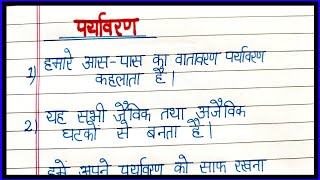 पर्यावरण
1) हमारे आस-पास का वातावरण पर्यावरण
कहलाता है।
2) यह सभी जैविक तथा अजैविक
घटकों से बनता है।
हमें अपने पर्यावरण को साफ रखना